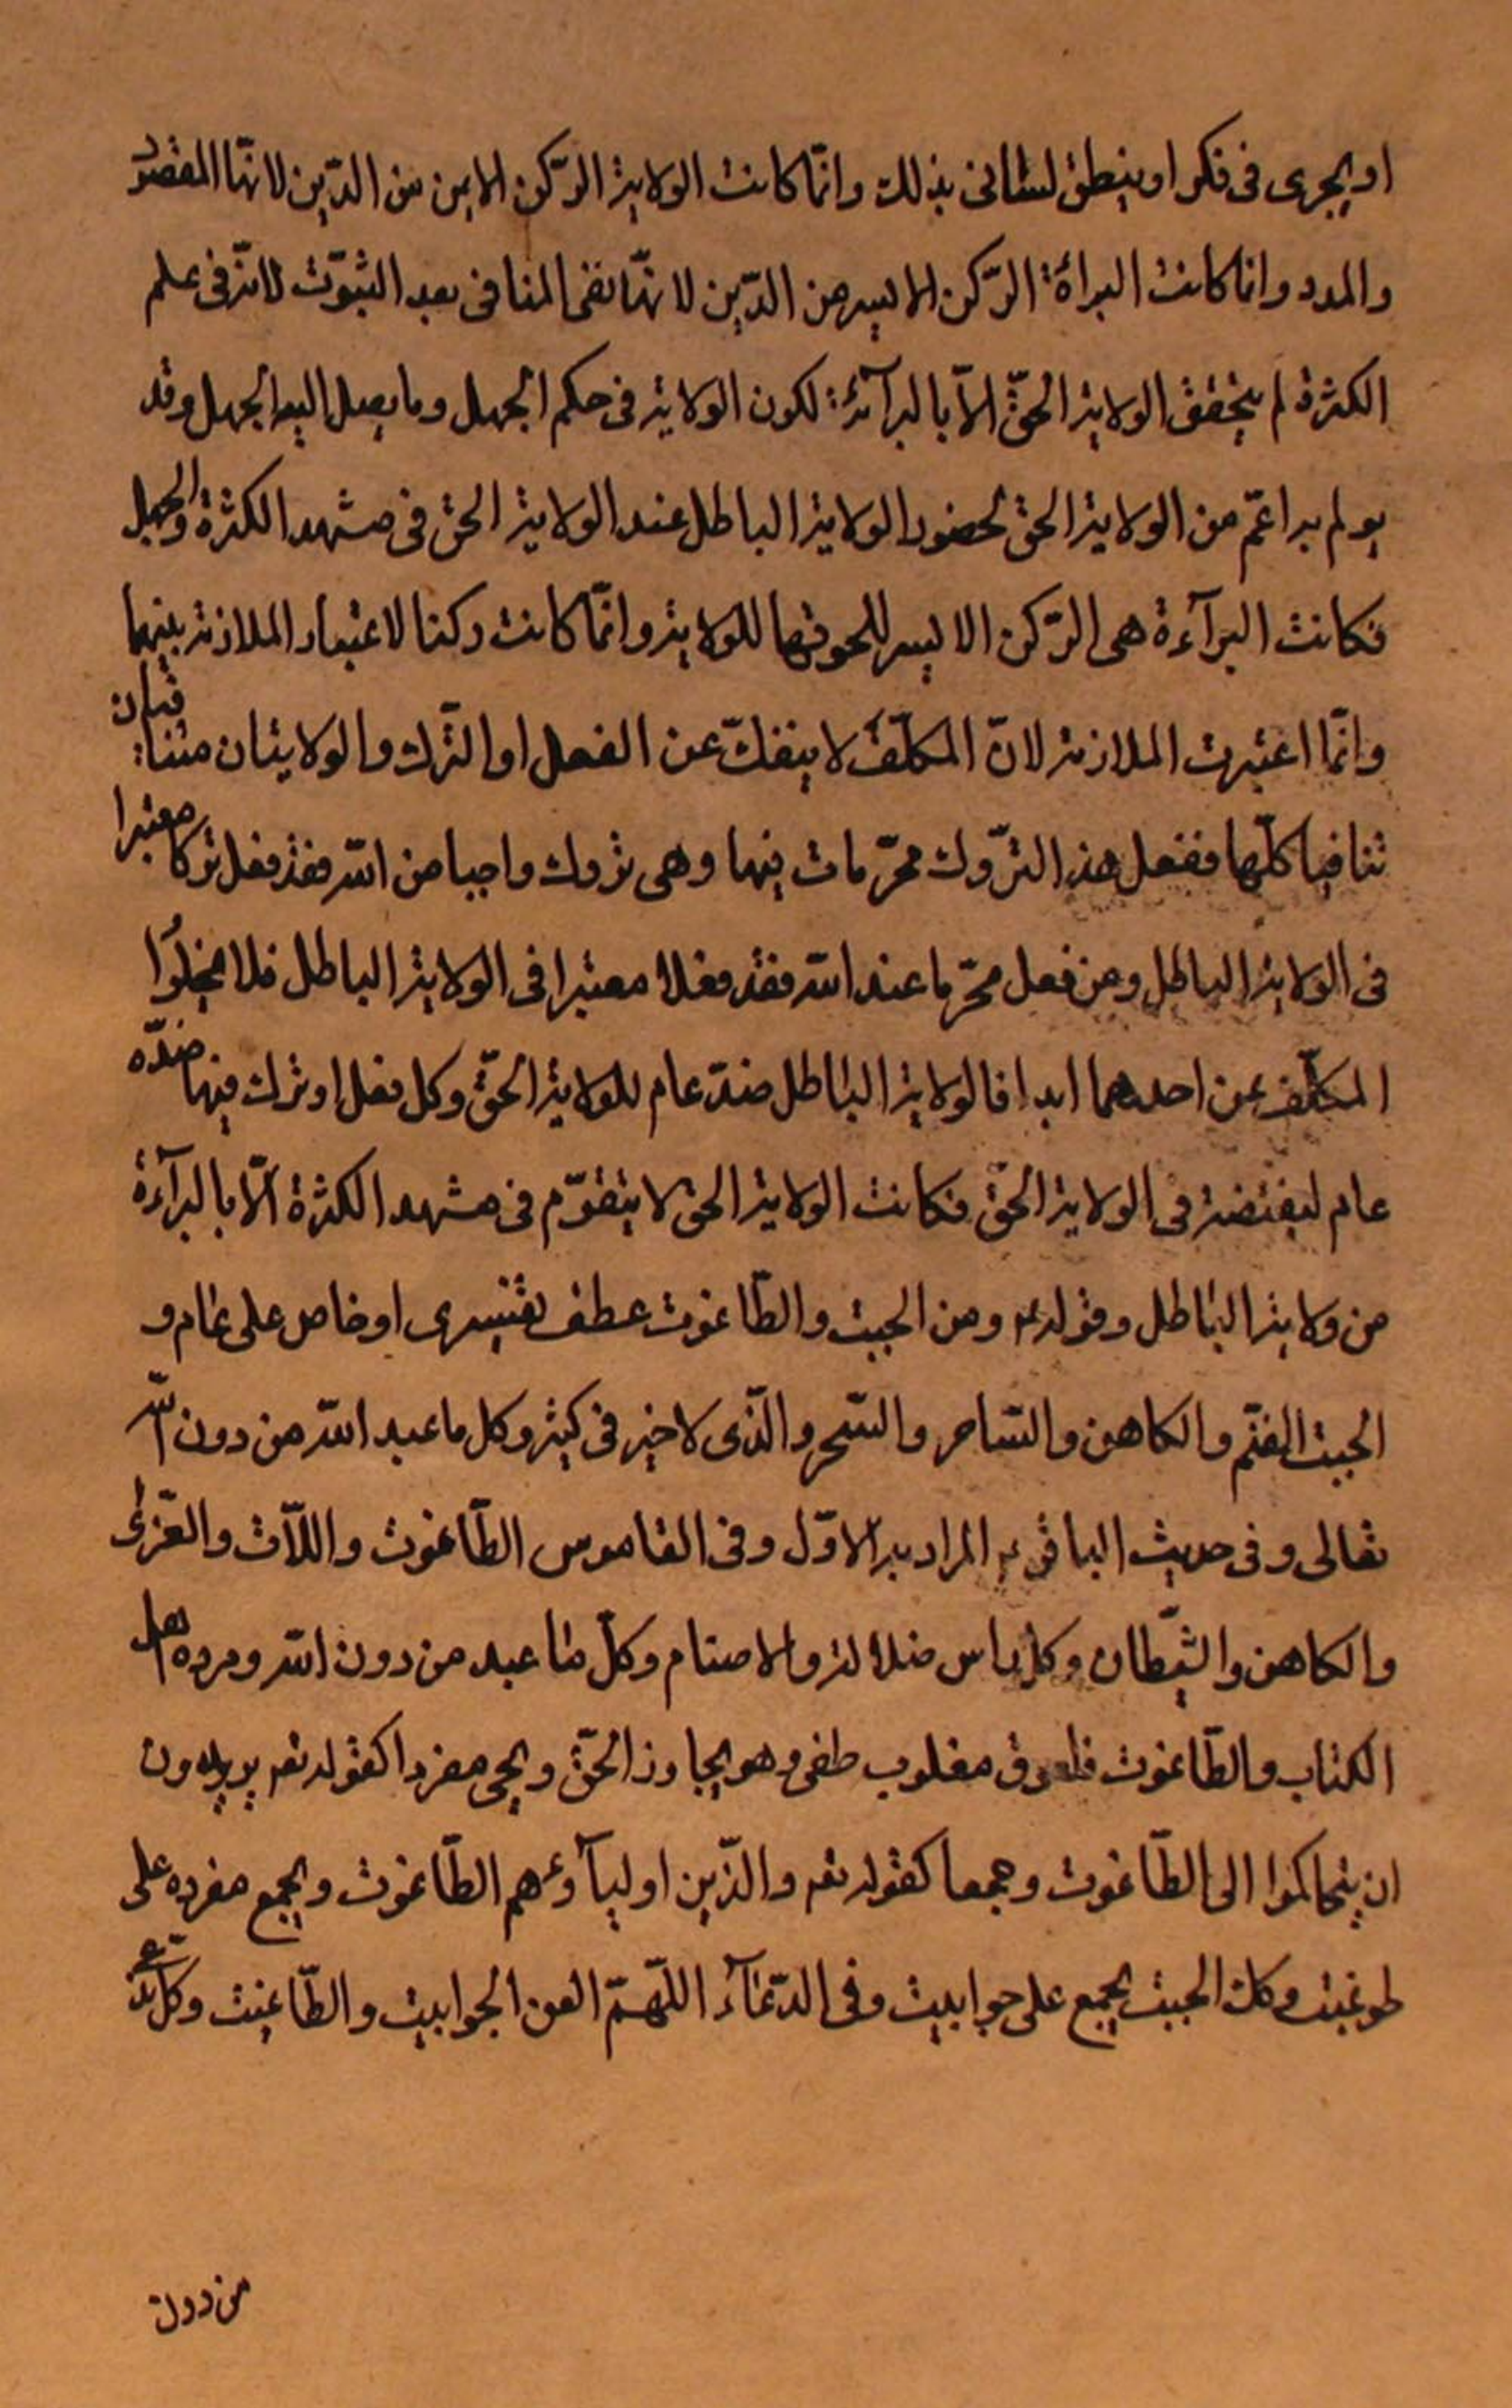 او يجرى فى فكر او ينطق لسانى بذلك وانّما كانت الولاية الرّكن الايمن من الدّين لانّها المقصود
والمدد وانما كانت البراءة الرّكن الايسر من الدّين لانّها نفى المنافى بعد الثبوت لانّه فى علم
الكثرة لم يتحقق الولاية الحقّ الاّ بالبرآءة لكون الولاية فى حكم الجهل وما يصل اليه الجهل وقد
يو لم ير اعمّ من الولاية الحق لحضور الولاية الباطل عند الولاية الحق فى مشهد الكثرة والجهل
فكانت البرآءة هى الرّكن الايسر للحوقها للولاية وانّما كانت ركنا لاعتبار الملازمة بينهما
وانّما اعتبرت الملازمة لانّ المكلّف لا ينفكّ عن الفعل او التّرك والولايتان متنافيتان
تنافيا كلّها ففعل هذ التّروك محرّمات فيها وهى تروك واجبا من اللّه فقد فعل تركا معتبرا
فى الولاية الباطل ومن فعل محرّما عند اللّه فقد فعلا معتبرا فى الولاية الباطل فلا يخلوا
المكلّف عن احدهما ابدا فالولاية الباطل ضدّ عام للولاية الحقّ وكل فعل او ترك فيها ضدّه
عام لنقيضه فى الولاية الحقّ فكانت الولاية الحق لا يتقوّم فى مشهد الكثرة الّا بالبرآءة
من ولاية الباطل وقوله ع ومن الجبت والطّاغوت عطف تفسيرى او خاص على عام و
الجبت الصّنم والكاهن والسّاحر والسّحر والّذى لا خير فى كثير وكل ما عبد اللّه من دون اللّه
تعالى وفى حديث الباقر ع المراد به الاوّل وفى القاموس الطّاغوت واللّات والعزّى
والكاهن والشّيطان وكل راس ضلالة والاصنام وكلّ ما عبد من دون اللّه ومرده اهل
الكتاب والطّاغوت فلعوق مقلوب طغى و هو يجاوز الحقّ ويجى مفردا كقوله تع يريدون
ان يتحاكموا الى الطّاغوت وجمعا كقوله تع والّذين اوليآؤهم الطّاغوت ويجمع مفرده على
طواغيت وكك الجبت يجمع على جوابيت وفى الدّعآء اللّهمّ العن الجوابيت والطّاغيت وكلّ
من دون